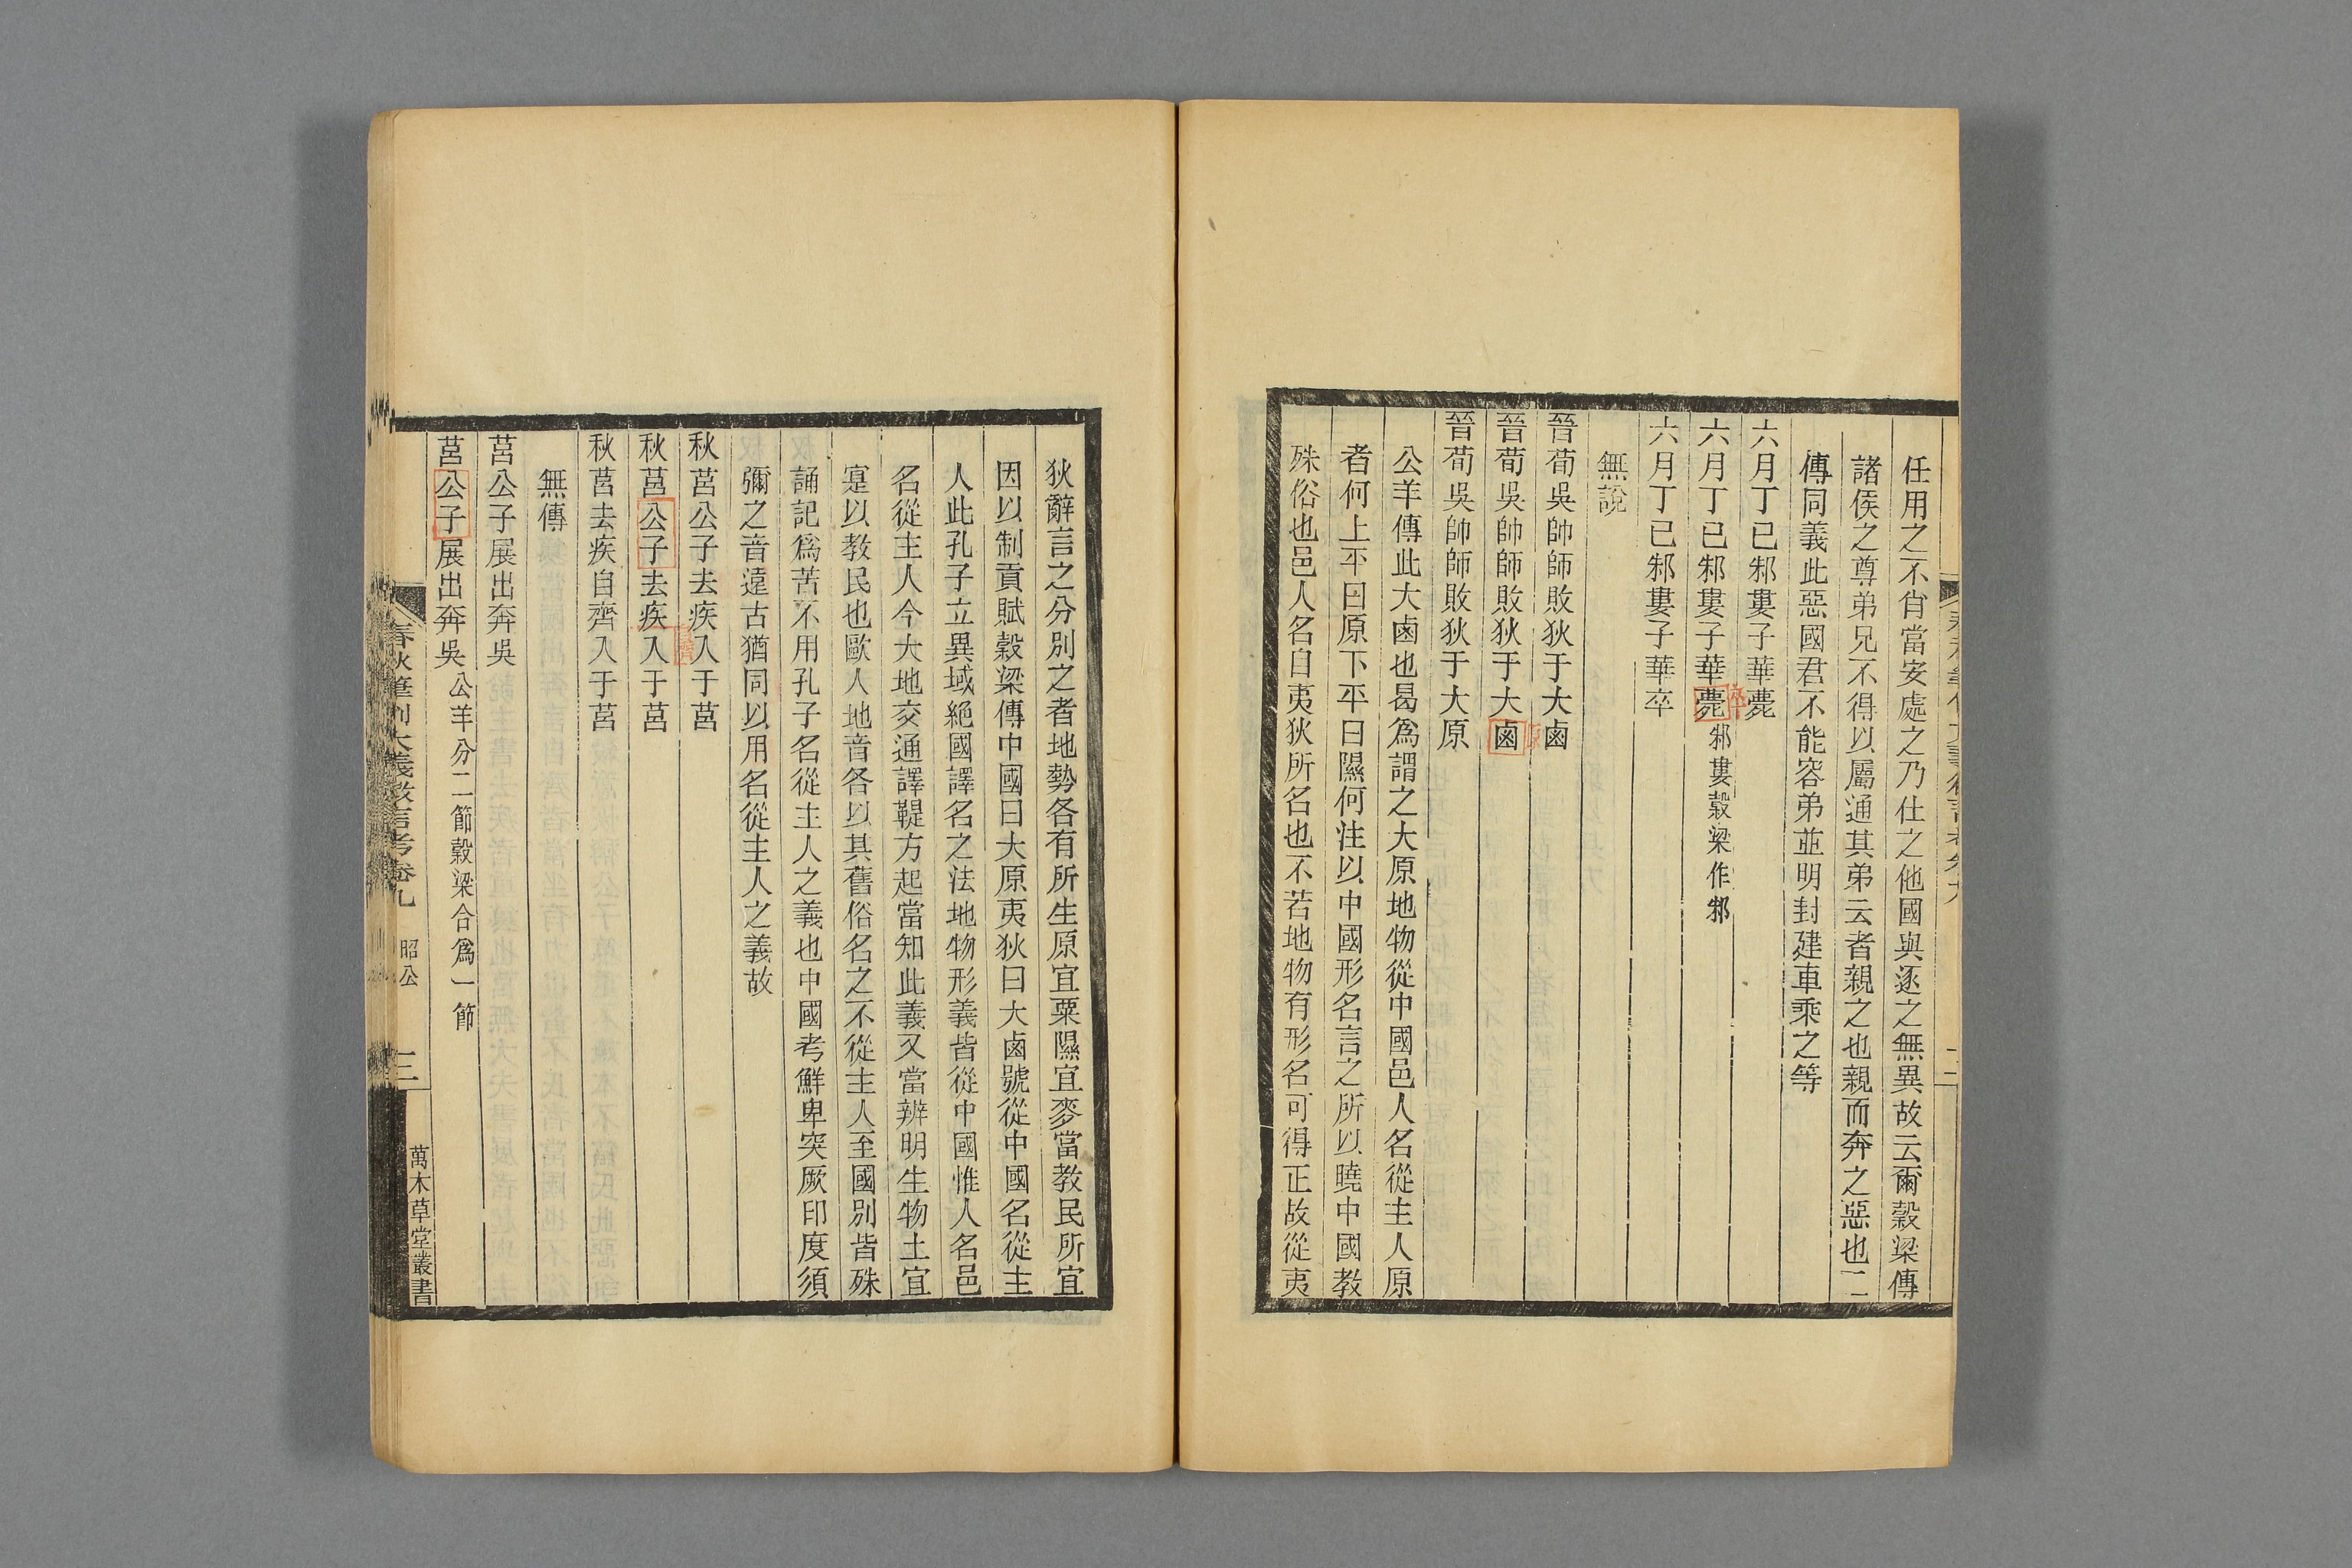 任用之不肖當安處之乃仕之他國與逐之無異故云爾穀梁傳
諸侯之尊弟兄不得以屬通其弟云者親之也親而奔之惡也二
傳同義此惡國君不能容弟並明封建車乘之等
六月丁巳邾婁子華薨
卒
六月丁巳邾婁子華薨邾婁穀梁作邾
六月丁巳邾婁子華卒
無說
晉荀吳帥師敗狄于大鹵
原
晉荀吳帥師敗狄于大鹵
晉荀吳帥師敗狄于大原
公羊傳此大鹵也曷爲謂之大原地物從中國邑人名從主人原
者何上平曰原下平曰隰何注以中國形名言之所以曉中國教
殊俗也邑人名自夷狄所名也不若地物有形名可得正故從夷
狄辭言之分別之者地勢各有所生原宜粟隰宜麥當教民所宜
因以制貢賦穀梁傳中國曰大原夷狄曰大鹵號從中國名從主
人此孔子立異域絕國譯名之法地物形義皆從中國惟人名邑
名從主人今大地交通譯鞮方起當知此義又當辨明生物土宜
寔以教民也歐人地音各以其舊俗名之不從主人至國別皆殊
誦記爲苦不用孔子名從主人之義也中國考鮮卑突厥印度須
彌之音遠古猶同以用名從主人之義故
秋莒公子去疾入于莒
秋莒公子去疾入于莒
秋莒去疾自齊入于莒
無傳
莒公子展出奔吳
莒公子展出奔吳公羊分二節穀梁合爲一節
春秋筆削大義微言考卷九 昭公 三 萬木草堂叢書